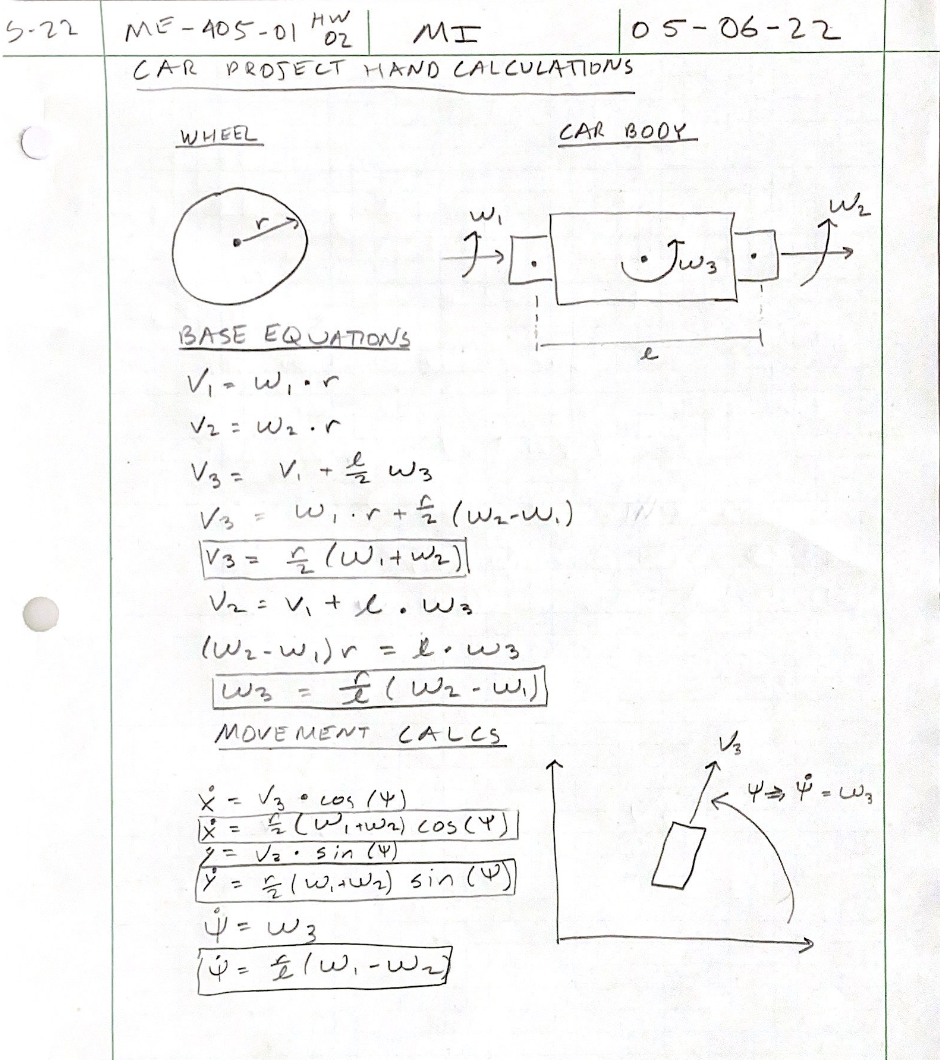 S-22 ME-405-01 HW 02 MI 05-06-22
CAR PROJECT HAND CALCULATIONS
WHEEL CAR BODY
r
ω₁ ω₃ ω₂
l
BASE EQUATIONS
V₁ = ω₁ · r
V₂ = ω₂ · r
V₃ = V₁ + l/2 ω₃
V₃ = ω₁ · r + r/2 (ω₂-ω₁)
V₃ = r/2 (ω₁+ω₂)
V₂ = V₁ + l · ω₃
(ω₂-ω₁)r = l · ω₃
ω₃ = r/l (ω₂-ω₁)
MOVEMENT CALCS
V₃
ψ ⇒ ψ̇ = ω₃
ẋ = V₃ · cos(ψ)
ẋ = r/2 (ω₁+ω₂) cos(ψ)
ẏ = V₃ · sin(ψ)
ẏ = r/2 (ω₁+ω₂) sin(ψ)
ψ̇ = ω₃
ψ̇ = r/l (ω₁-ω₂)